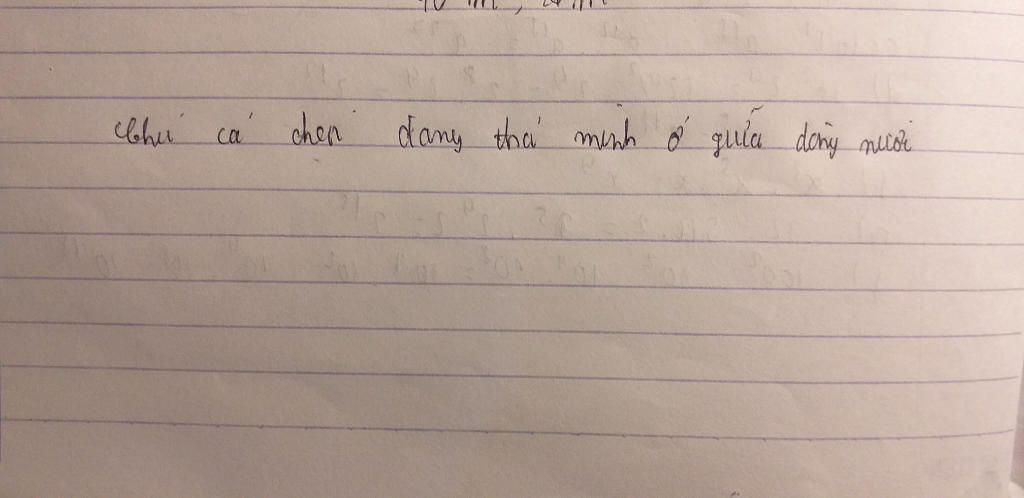 Chú cá chen đang thả mình ở giữa dòng nước